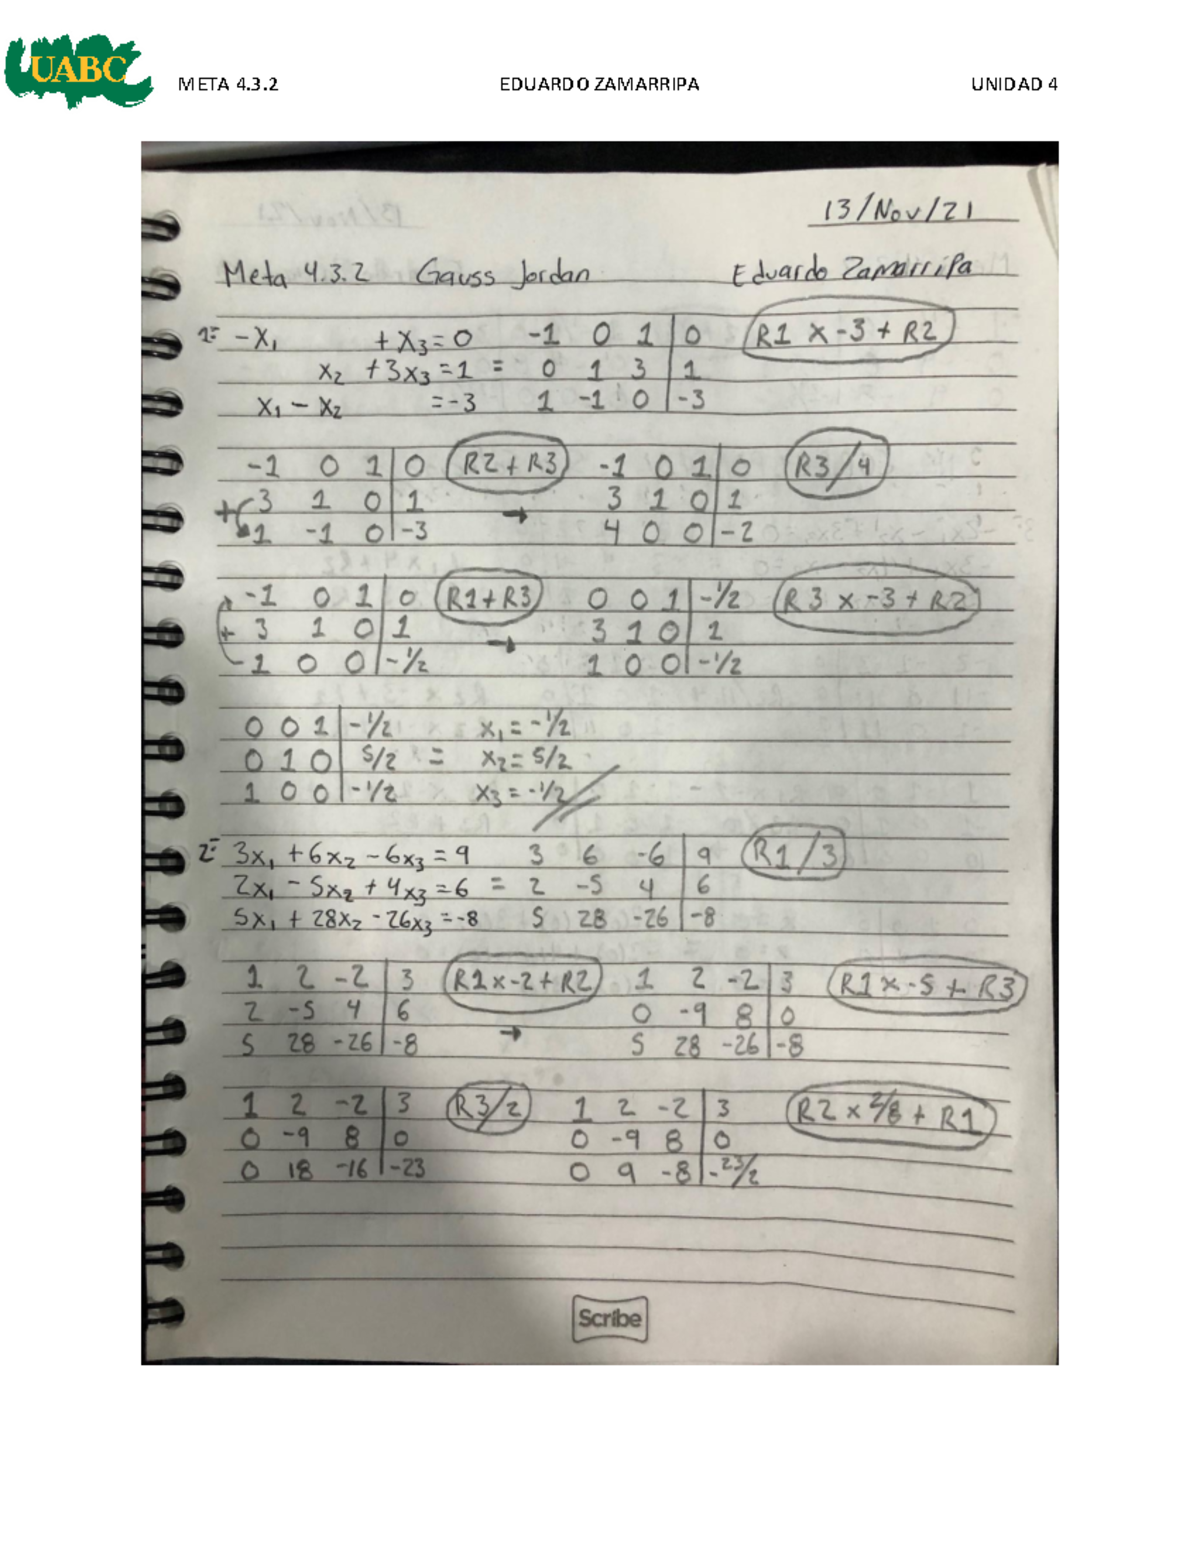 UABC
META 4.3.2 EDUARDO ZAMARRIPA UNIDAD 4
13/Nov/21
Meta 4.3.2 Gauss Jordan Eduardo Zamarripa
1= -x₁ + x₃ = 0 -1 0 1 | 0 R1 x -3 + R2
x₂ + 3x₃ = 1 = 0 1 3 | 1
x₁ - x₂ = -3 1 -1 0 | -3
-1 0 1 | 0 R2 + R3 -1 0 1 | 0 R3/4
+ 3 1 0 | 1 → 3 1 0 | 1
1 -1 0 | -3 4 0 0 | -2
-1 0 1 | 0 R1 + R3 0 0 1 | -1/2 R3 x -3 + R2
+ 3 1 0 | 1 → 3 1 0 | 1
1 0 0 | -1/2 1 0 0 | -1/2
0 0 1 | -1/2 x₁ = -1/2
0 1 0 | 5/2 = x₂ = 5/2
1 0 0 | -1/2 x₃ = -1/2
2= 3x₁ + 6x₂ - 6x₃ = 9 3 6 -6 | 9 R1/3
2x₁ - 5x₂ + 4x₃ = 6 = 2 -5 4 | 6
5x₁ + 28x₂ - 26x₃ = -8 5 28 -26 | -8
1 2 -2 | 3 R1 x -2 + R2 1 2 -2 | 3 R1 x -5 + R3
2 -5 4 | 6 → 0 -9 8 | 0
5 28 -26 | -8 5 28 -26 | -8
1 2 -2 | 3 R3/2 1 2 -2 | 3 R2 x 2/8 + R1
0 -9 8 | 0 0 -9 8 | 0
0 18 -16 | -23 0 9 -8 | -23/2
Scribe